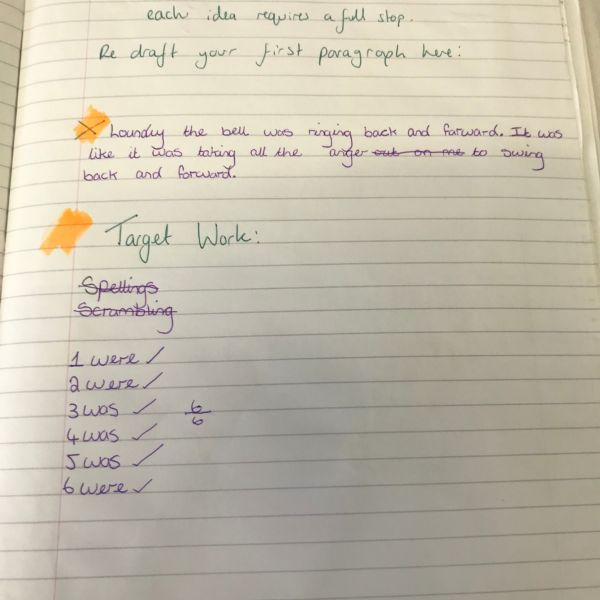 each idea requires a full stop.
Re draft your first paragraph here:
Loundly the bell was ringing back and forward. It was
like it was taking all the anger out on me to swing
back and forward.
Target Work:
Spellings
Scrambling
1 were ✓
2 were ✓
3 was ✓ 6/6
4 was ✓
5 was ✓
6 were ✓